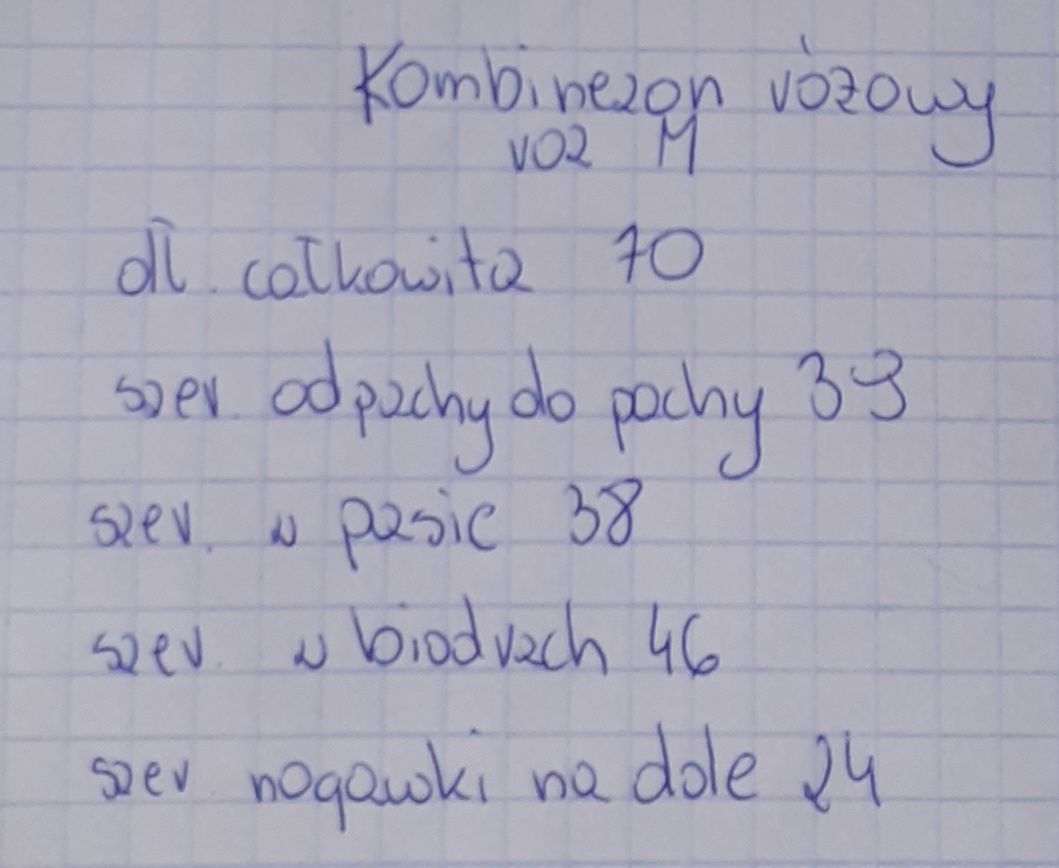 Kombinezon różowy
roz M
dł. całkowita 70
szer. od pachy do pachy 39
szer. w pasie 38
szer. w biodrach 46
szer nogawki na dole 24